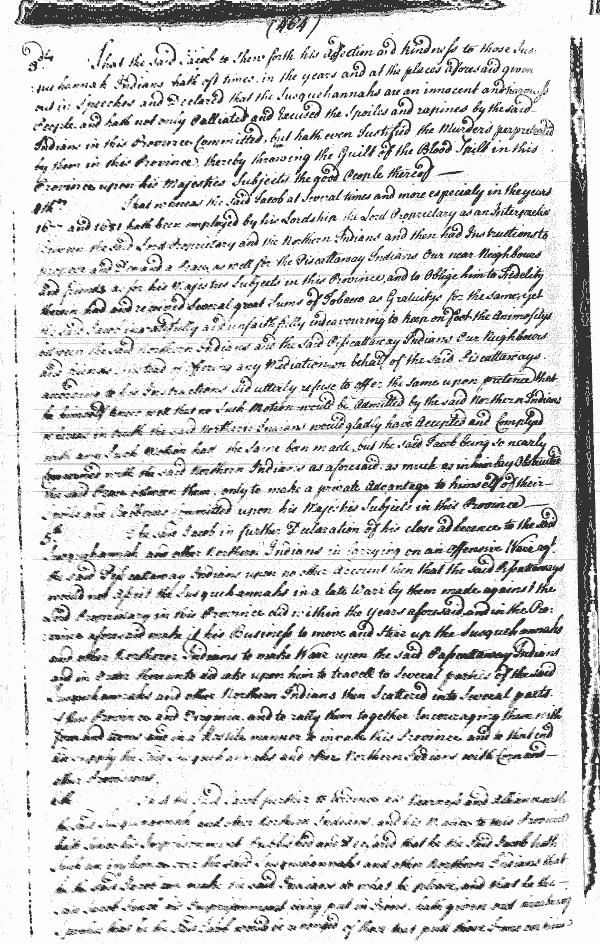 (464)
3dly That the Said Jacob to Shew forth his affection and Kindness to those Sus-
quehannah Indians hath oft times, in the years and at the places aforesaid given
out in Speeches and Declared that the Susquehannahs are an innocent and harmless
People, and hath not only Palliated and Excused the Spoiles and rapines by the said
Indians in this Province Committed, but hath even Justified the Murders perpetrated
by them in this Province, thereby throwing the Guilt of the Blood Spilt in this
Province upon his Majesties Subjects the good People thereof
That whereas the Said Jacob at Several times and more especialy in the years
and 1681 hath been employed by his Lordship the Lord Proprietary as an Interpreter
between the said Lord Proprietary and the Northern Indians and then had Instructions to
and Demand a Peace as well for the Piscattaway Indians Our near Neighbours
and friends as for his Majesties Subjects in this Province, and to Oblige him to Fidelity
therein had and received Several great Sums of Tobacco as Gratuitys for the Same, yet
the Said Jacob and unfaithfully indeavouring to keep on foot the Animositys
between the Said Northern Indians and the Said Pisscattaway Indians Our Neighbours
and friends, instead of offering any Mediation on behalf of the Said Piscattaways
according to his Instructions did utterly refuse to offer the Same upon pretence that
he himself knew well that no Such Motion would be Admitted by the said Northern Indians
whereas in truth the said Northern Indians would gladly have Accepted and Complyed
with any Such Motion had the Same been made, but the said Jacob being so nearly
Concerned with the said Northern Indians as aforesaid, as much as in him lay Obstructed
the said Peace between them, only to make a private Advantage to himself of their
Spoiles and Robberies Committed upon his Majesties Subjects in this Province
5th The Said Jacob in further Declaration of his close adherence to the said
Susquehannah and other Northern Indians in carrying on an offensive Warr agt
the Said Pisscattaway Indians upon no other Account then that the said Pisscattaways
would not Assist the Susquehannahs in a late Warr by them made against the
Lord Proprietary in this Province did within the Years aforesaid, and in the Pro-
vince aforesaid make it his Business to move and Stirr up the Susquehannahs
and other Northern Indians to make Warr upon the said Passcattaway Indians
and in Order thereunto did take upon him to travell to Several parties of the said
Susquehannahs and other Northern Indians then Scattered into Several parts
of this Province and Virginia, and to rally them together Encouraging them with
and Arms and in a Hostile manner to invade this Province and to that end
did Supply the Said Susquehannahs and other Northern Indians with Corn and
other Provisions.
6th That the Said Jacob further to Evidence his Nearness and Alliance with
the Said Susquehannah and other Northern Indians, and his to this Province
hath Since his Imprisonment Published and Declared that he the Said Jacob hath
Such an over the said Susquehannahs and other Northern Indians that
he the Said Jacob can make the said Indians do what he please, and that he the
Said Jacob Since his Imprisonment being put in Irons, hath given out
Speeches that he the Said Jacob would be revenged of those that put those Irons on him